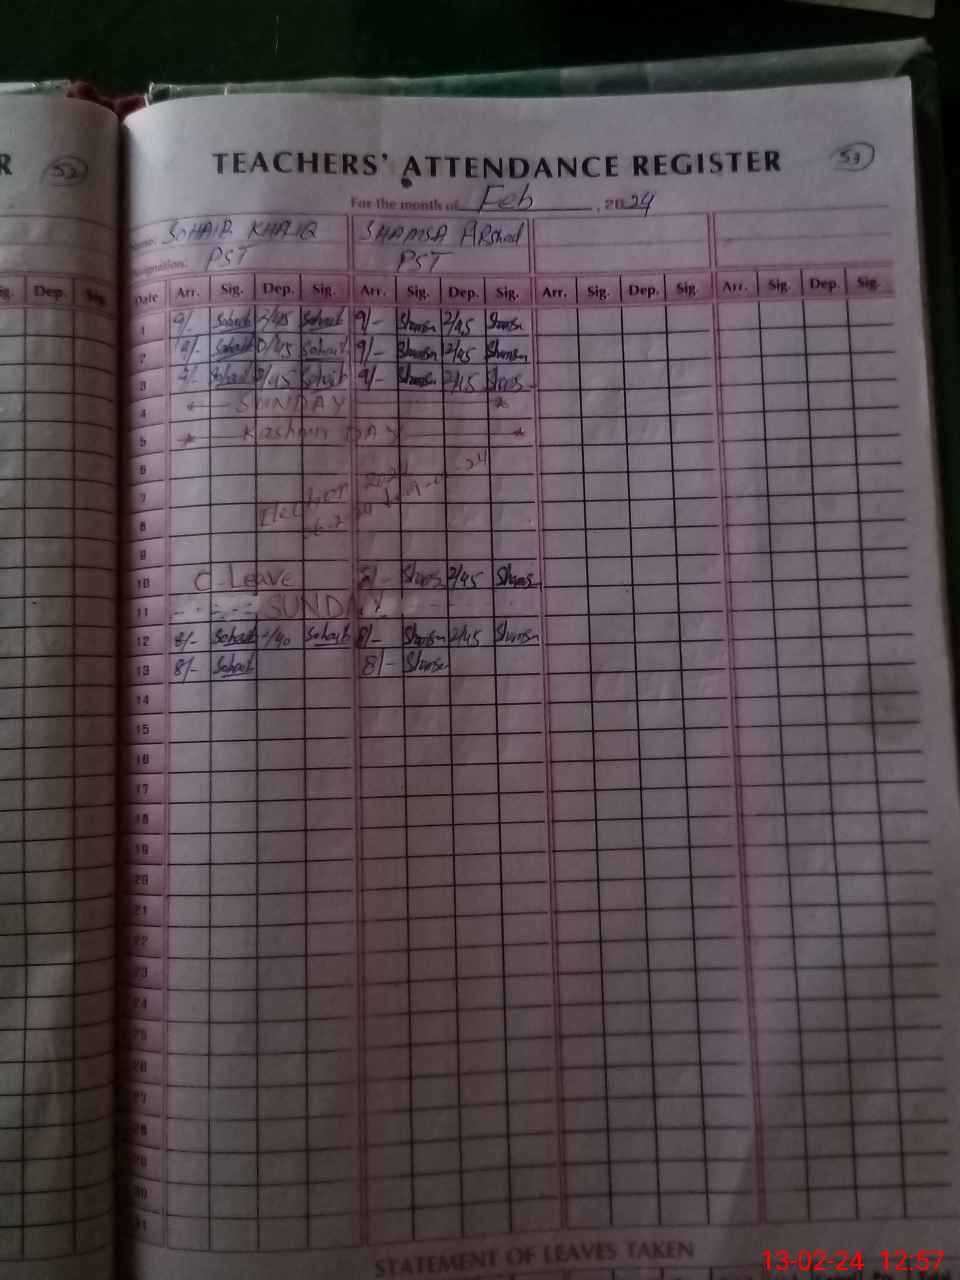 R 52
TEACHERS' ATTENDANCE REGISTER 53
For the month of Feb, 2024
Name: SOHAIB KHALIQ SHAMSA ARshad
Designation: PST PST
Sig. Dep. Sig. Date Arr. Sig. Dep. Sig. Arr. Sig. Dep. Sig. Arr. Sig. Dep. Sig. Arr. Sig. Dep. Sig.
1 9/- Sohaib 2/45 Sohaib 9/- Shamsa 2/45 Shamsa
2 9/- Sohaib 2/45 Sohaib 9/- Shamsa 12/45 Shamsa
3 9/- Sohaib 2/45 Sohaib 9/- Shamsa 2/45 Shams
4 SUNDAY
5 Kashmir DAY
6
7
8 Election 2024
9
10 C-Leave 8/- Shams 2/45 Shams
11 SUNDAY
12 8/- Sohaib 2/40 Sohaib 8/- Shamsa 2/45 Shamsa
13 8/- Sohaib 8/- Shamsa
14
15
16
17
18
19
20
21
22
23
24
25
26
27
28
29
30
31
STATEMENT OF LEAVES TAKEN
13-02-24 12:57